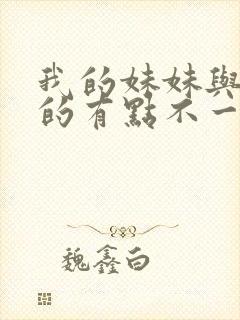 我的妹妹與
的有點不一
魏鑫白